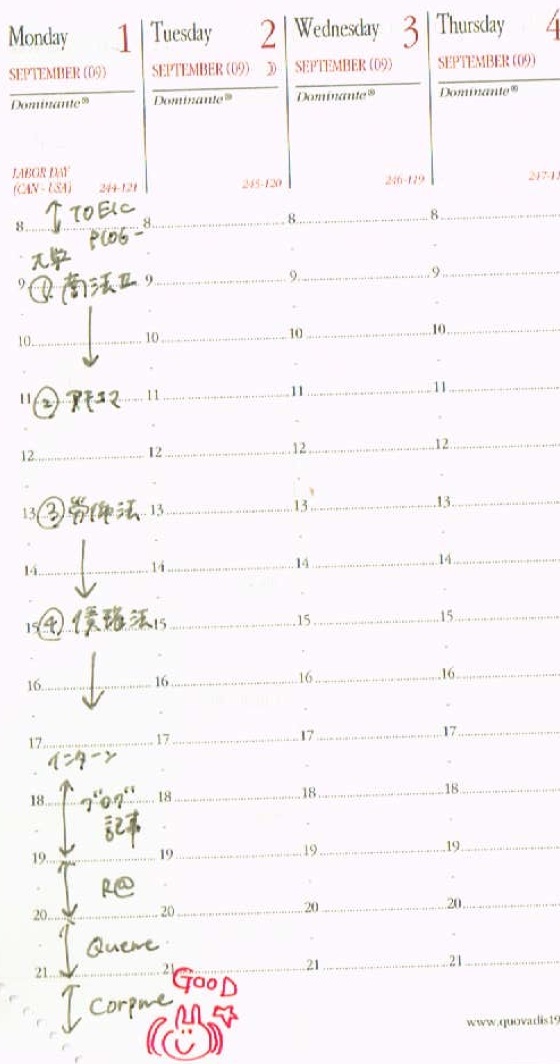 Monday 1
SEPTEMBER (09)
Dominante®
LABOR DAY
(CAN - USA) 244-121
Tuesday 2
SEPTEMBER (09)
Dominante®
245-120
Wednesday 3
SEPTEMBER (09)
Dominante®
246-119
Thursday 4
SEPTEMBER (09)
Dominante®
TOEIC
8 8 8 8
大学
9 ① 商法II 9 9 9
10 10 10 10
11 ② 11 11 11
12 12 12 12
13 ③ 労働法 13 13 13
14 14 14 14
15 ④ 債権法 15 15 15
16 16 16 16
17 17 17 17
インターン
18 ブログ 18 18 18
記事
19 19 19 19
R@
20 20 20 20
Queue
21 21 21 21
GOOD